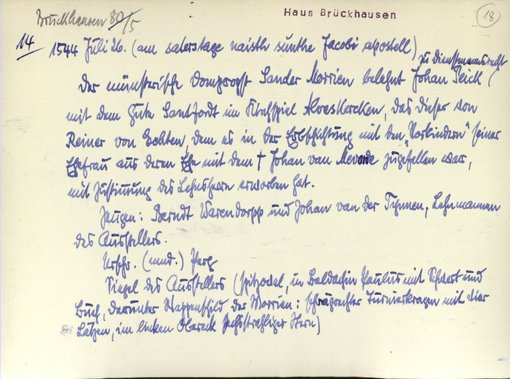 Brückhausen 30/5
Haus Brückhausen
18
14 1544 Juli 26. (am saterstage naisth sunthe Jacobi apostell)
zu Dienstmannsrecht
Der münsterische Dompropst Sander Morrien belehnt Johan Beick
mit dem Gute Sandfordt im Kirchspiel Alverskercken, das dieser von
Reiner von Echten, dem es in der Erbschichtung mit den "Vorkindern" seiner
Ehefrau aus deren Ehe mit dem † Johan van zugefallen war,
mit Zustimmung des Lehnsherrn erworben hat.
Zeugen: Berndt Warendorpp und Johan van der Tynnen, Lehnmannen
des Ausstellers.
Urschr. (mnd.) Perg.
Siegel des Ausstellers (spitzoval, in Baldachin Paulus mit Schwert und
Buch, darunter Wappenschild der Morrien: schrägrechter Turnierkragen mit vier
Latzen, im linken Obereck sechsstrahliger Stern)